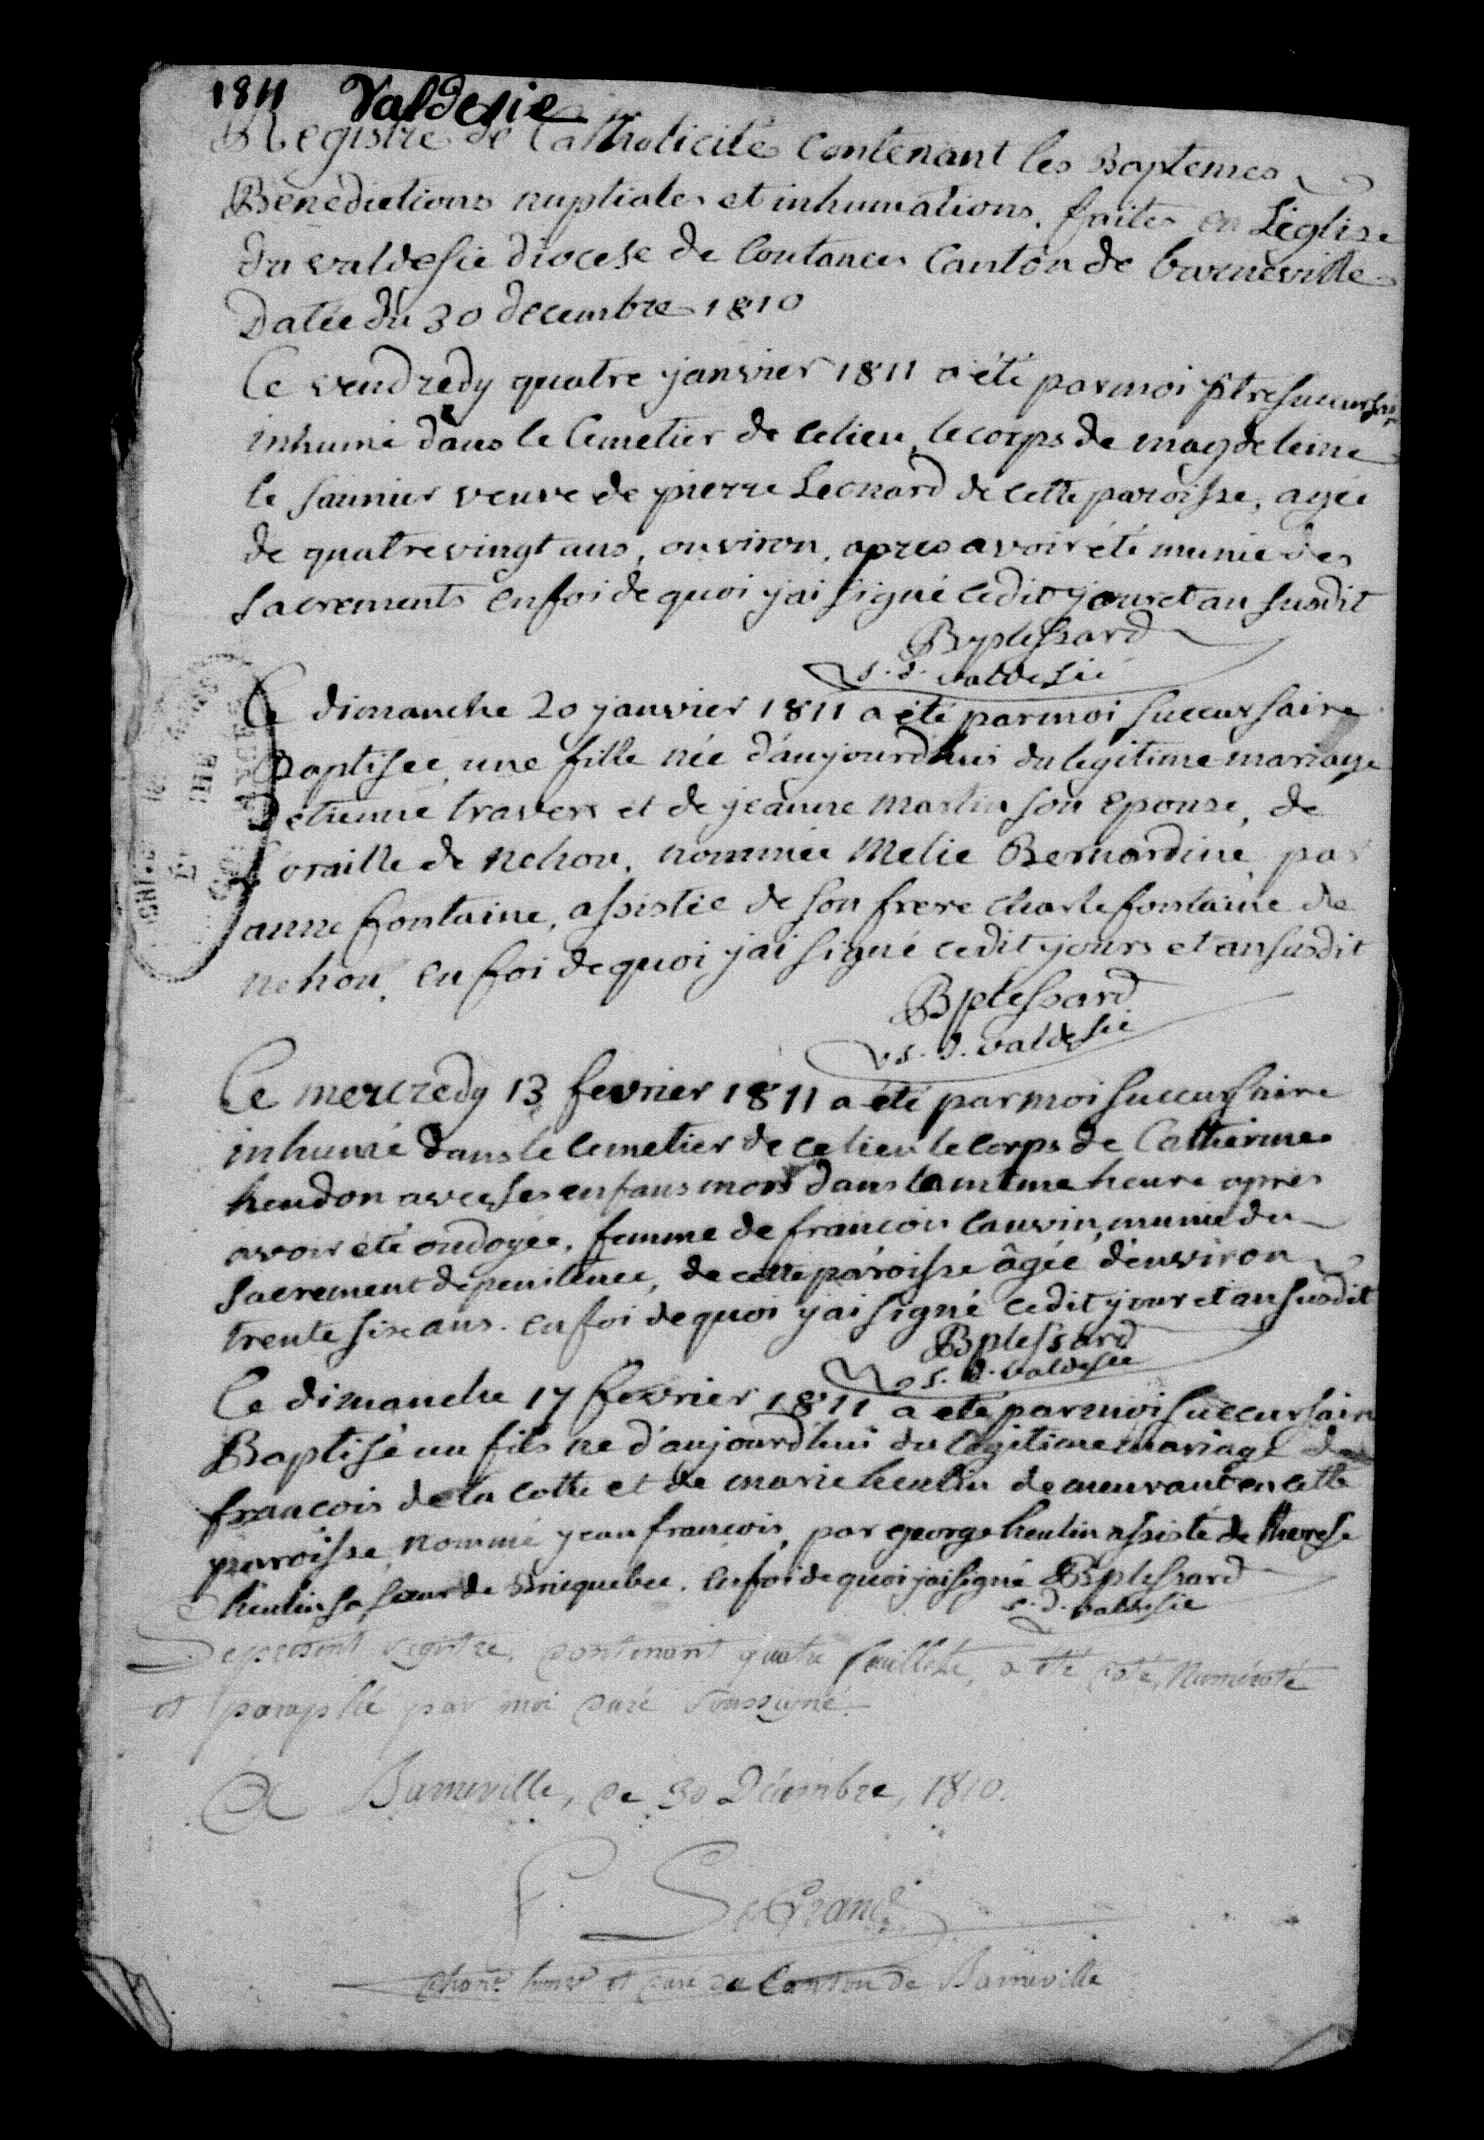 1811 Valdesie
Registre de Catholicité Contenant les Baptemes
Benedictions nuptiales et inhumations. faites en L'eglise
du valdesie diocese de Coutances Canton de barneville
Datée du 30 decembre 1810
Ce vendredy quatre janvier 1811 a été par moi ptre succursaire
inhumé dans le Cemetier de ce lieu le corps de magdeleine
le saunier veuve de pierre Leonard de cette paroisse, agée
de quatrevingt ans, onviron, apres avoir été munie des
sacrements en foi de quoi j'ai signé cedit jour et an susdit
B plessard
s. d. valdesié
Ce dimanche 20 janvier 1811 a été par moi succursaire
Baptisée, une fille née d'aujourd'hui du legitime mariage
d'etienne travers et de jeanne Martin son Epouse, de
St oraille de Nehou, nommée Melie Bernardine, par
anne fontaine, assistée de son frere charle fontaine de
nehou, en foi de quoi j'ai signé cedit jours et an susdit
B plessard
s. d. valdesié
Ce mercredy 13 fevrier 1811 a été par moi succursaire
inhumé dans le Cemetier de ce lieu le corps de Catherine
heudon avec ses enfans mors dans la mtme heure apres
avoir été ondoyée, femme de francois Cauvin, munie du
sacrement de penitence, de cette paroisse âgée d'environ
trente sixe ans. en foi de quoi j'ai signé cedit jour et an susdit
B plessard
s. d. valdesie
Ce dimanche 17 fevrier 1811 a été par moi succursaire
Baptisé un fils ne d'aujourd'hui du legitime mariage de
francois de la cotte et de marie heulin demeurant en cette
paroisse, nommé jean francois, par george heulin assisté de therese
heulin sa sœur de Bricquebec. en foi de quoi j'ai signé B plessard
s. d. valdesie
Le present registre, contenant quatre feuillets, a été coté, Numéroté
et paraphé par moi curé soussigné.
A Barneville, ce 30 Décembre, 1810.
F. LeGrand
chan. honre et curé du Canton de Barneville